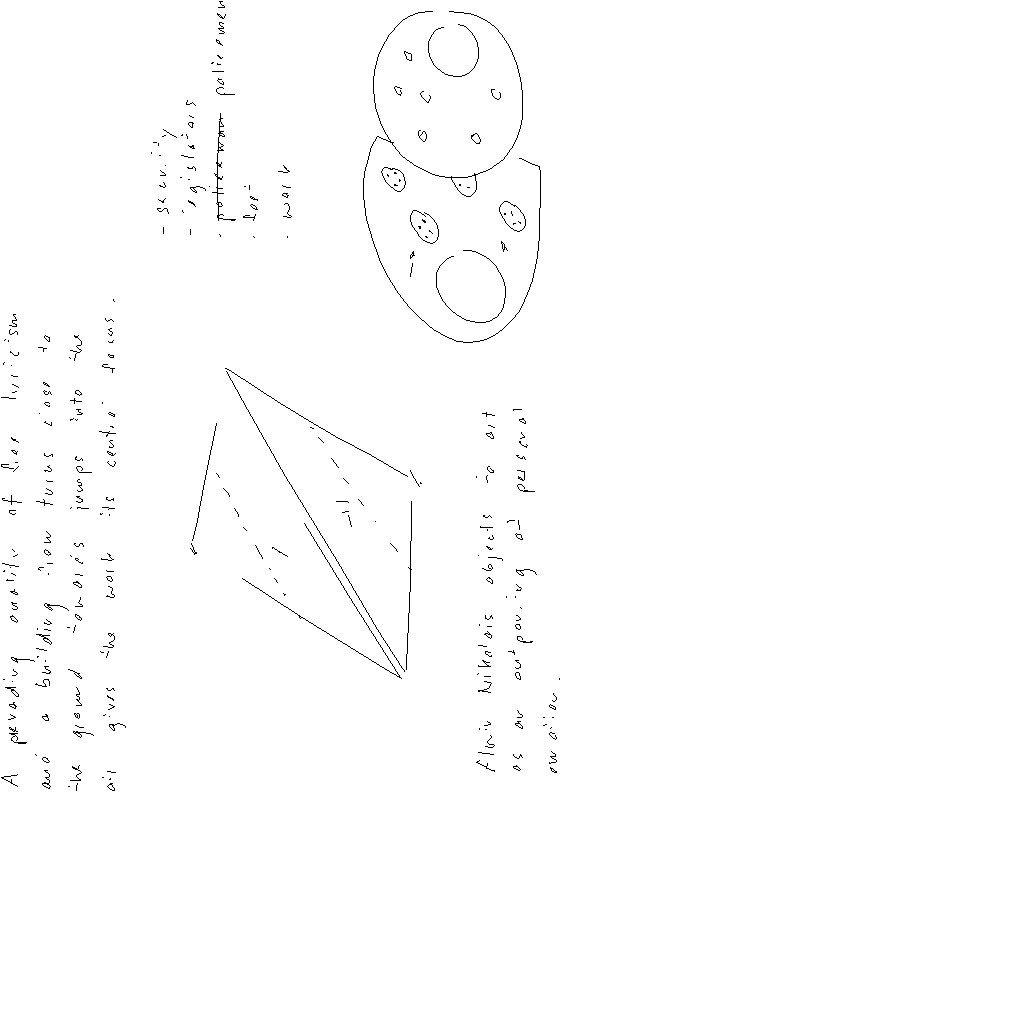 A pervading quality of free lyricism
and a building from turns close to
the ground towards jumps into the
air gives the work its central focus.
- security
- registrars
· policewom policemen
· feet
· work
Alwin Nikolais objects to art
as an outpouring of personal
emotion.